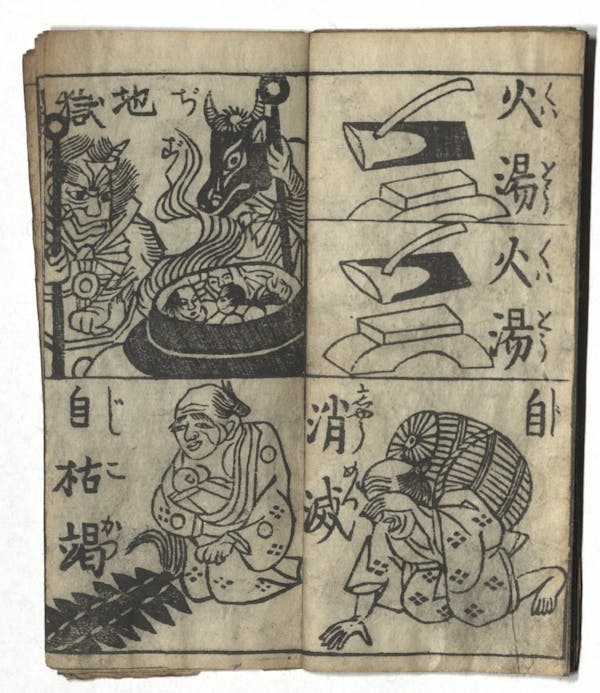 火湯
くいとう
火湯
くいとう
自
じ
消滅
しやうめつ
地獄
ぢ
自枯竭
じこかつ